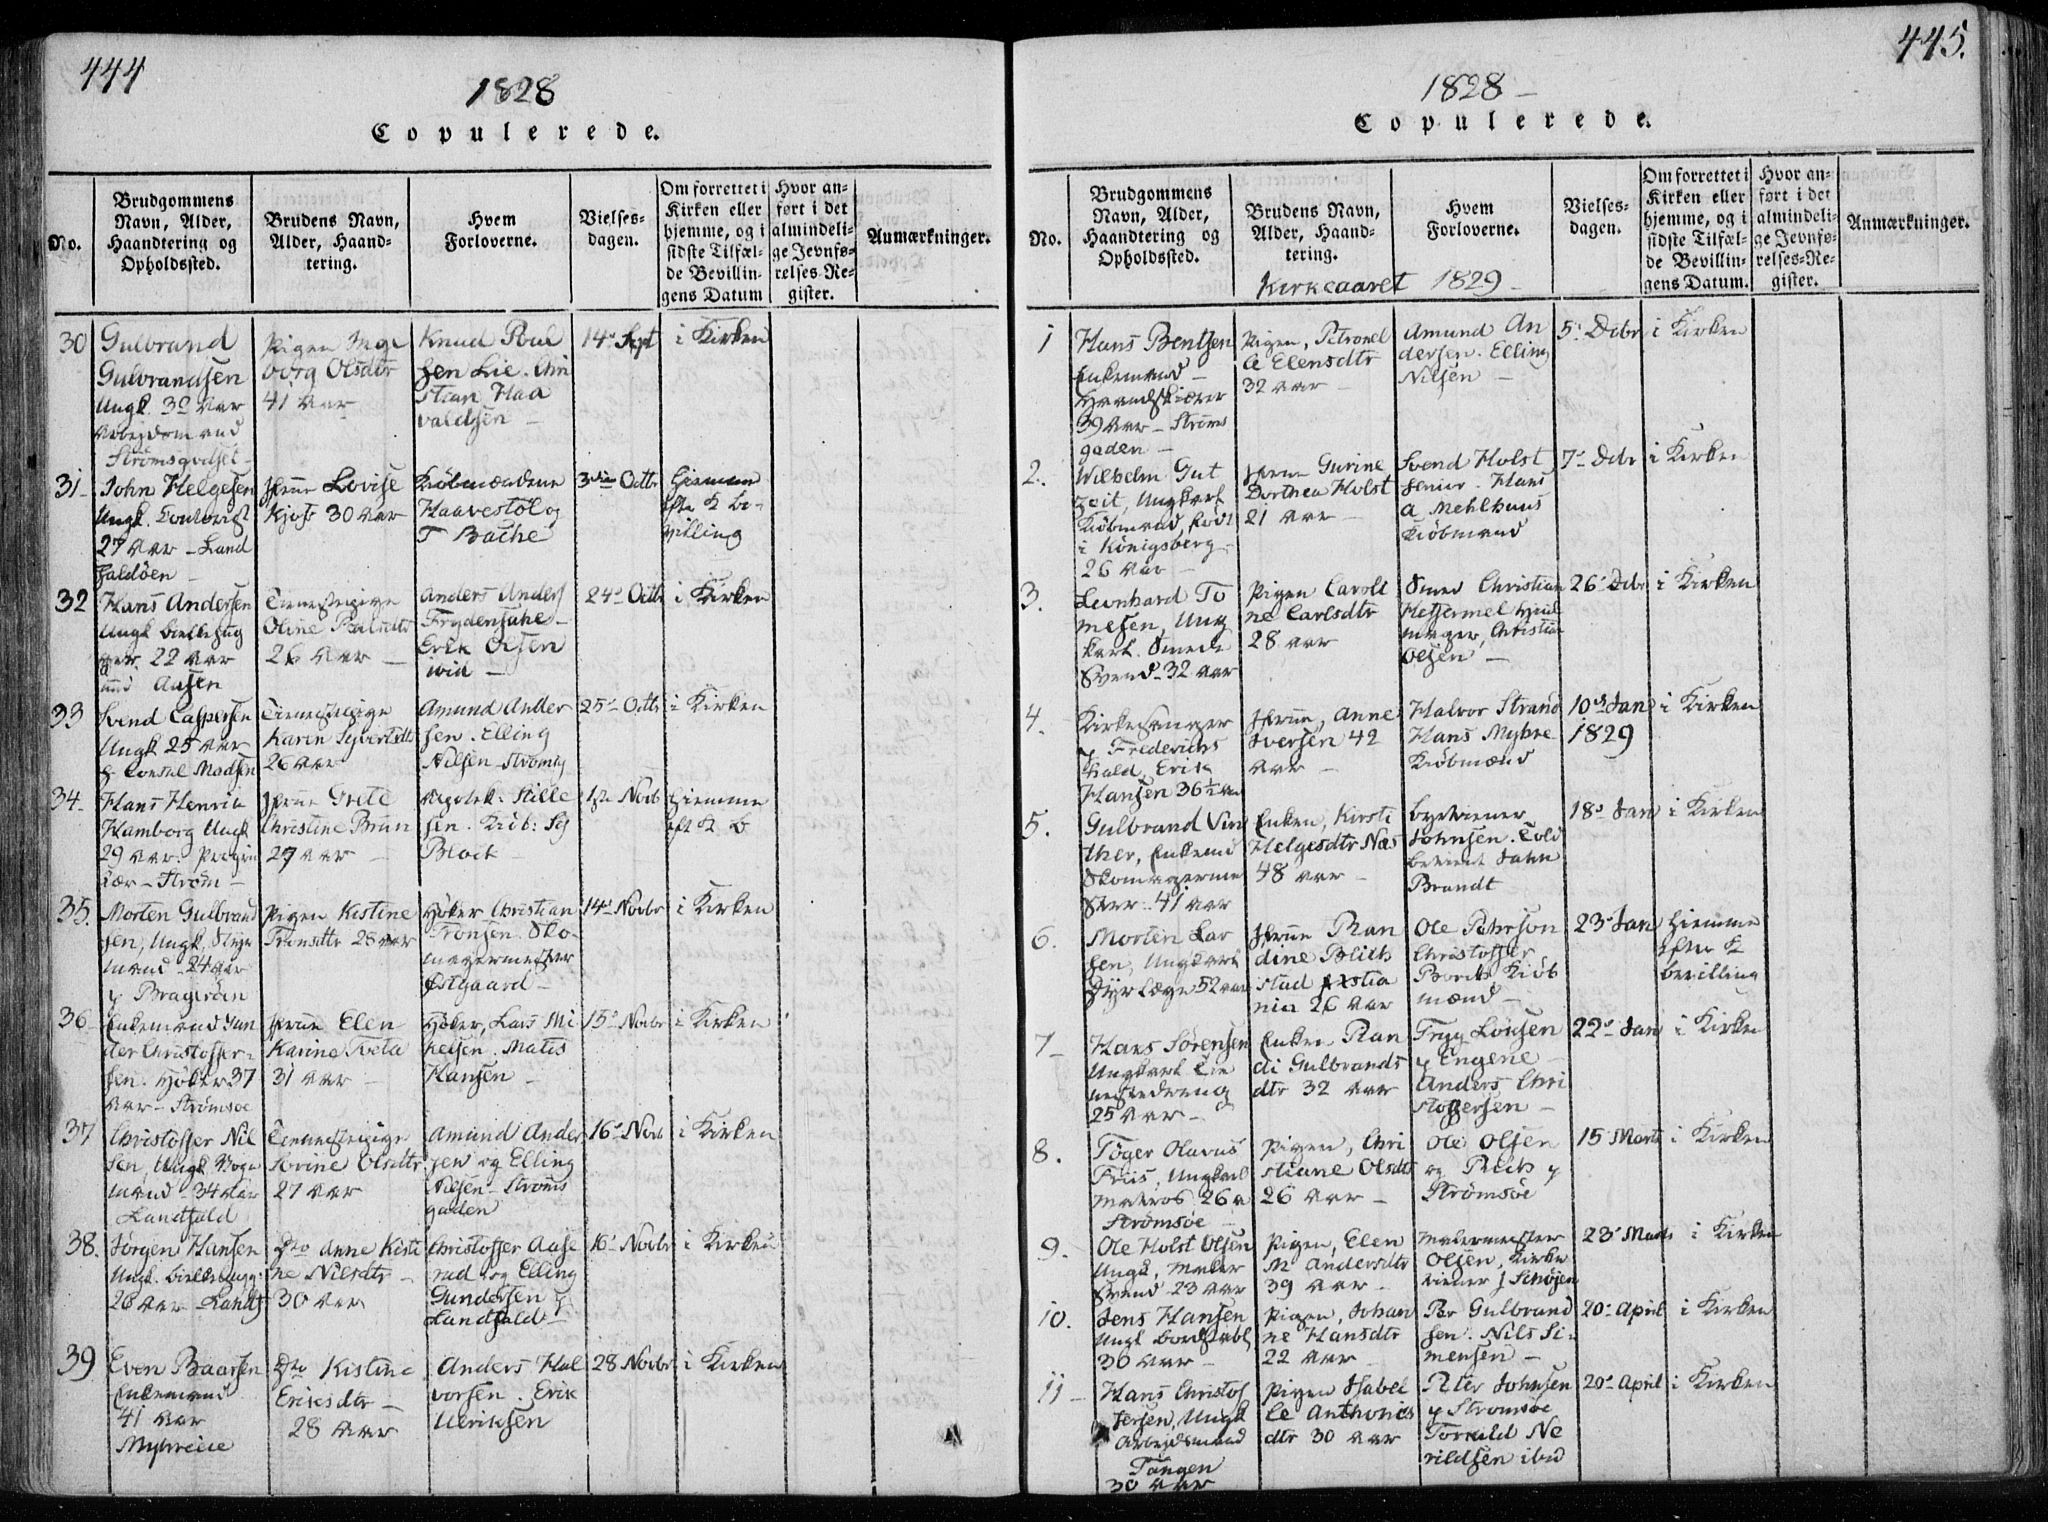 444
1828
Copulerede.
No.
Brudgommens Navn, Alder, Haandtering og Opholdssted.
Brudens Navn, Alder, Haandtering.
Hvem Forloverne.
Vielsesdagen.
Om forrettet i Kirken eller hjemme, og i sidste Tilfælde Bevillingens Datum
Hvor anført i det almindelige Jevnførelses-Register.
Anmærkninger.
30
Gulbrand
Gulbrandsen
Ungk. 30 Aar
Arbejdsmand
Strømsgodset
Pigen Inge
borg Olsdtr
41 Aar
Knud Poul
sen Lie. Chri
stian Haa
valdsen
14de Sept
i Kirken
31
John Helgesen
Ungk.
27 Aar - Land
faldøen
Jfrue Lovise
Kjos 30 Aar
Kiøbmændene
Haavestøl og
T Bache
3die Octbr
hiemme
efter K be-
villing
32
Hans Andersen
Ungk
22 Aar
Aasen
Tienestepige
Oline Paulsdtr
26 Aar
Anders Anders
Frydenhule
Erik Olsen
ibid
24de Octbr
i Kirken
33
Svend Caspersen
Ungk 25 Aar
Consul Madsen
Tienestepige
Karen Syvertsdtr
26 Aar
Amund Ander
sen. Elling
Nilsen Strømsg
25de Octbr
i Kirken
34
Hans Henrik
Hamborg Ungk
29 Aar.
Strøm
Jfrue Grete
Christine Brun
27 Aar
Apotek. Kille
sen. Kiøb:
Block
1ste Novb
hiemme
eft K b
35.
Morten Gulbrand
sen, Ungk.
mand - 24 Aar
p Bragerøen
Pigen Kistine
Tronsdtr 28 Aar
Høker Christian
Tronsen. Sko-
magermester
Østgaard
14de Novbr
i Kirken
36
Enkemand Gun
der Christoffer-
sen. Høker 37
Aar - Strømsøe
Jfrue Elen
Karine Tveta
31 Aar
Høker, Lars Mi
kelsen. Matis
Hansen
15de Novbr
i Kirken
37
Christoffer Nil
sen, Ungk
mand - 34 Aar
Landfald
Tienestepige
Sevrine Olsdtr
27 Aar
Amund Ander
sen og Elling
Nilsen Strøms
gaden
16de Novb
i Kirken
38.
Jørgen Hansen
Ungk.
26 Aar Landf
Dto Anne Kisti
ne Nilsdtr
30 Aar
Christoffer Aase
rud og Elling
Gundersen p
Landfald
16de Novbr
i Kirken
39
Even Baarsen
Enkemand
41 Aar
Myhreiie
Dto Kistine
Eriksdtr
28 Aar
Anders Hal
vorsen. Erik
Ulriksen
28 Novbr
i Kirken
445.
1828
Copulerede.
No.
Brudgommens Navn, Alder, Haandtering og Opholdssted.
Brudens Navn, Alder, Haandtering.
Hvem Forloverne.
Vielsesdagen.
Om forrettet i Kirken eller hjemme, og i sidste Tilfælde Bevillingens Datum.
Hvor anført i det almindelige Jevnførelses-Register.
Anmærkninger.
Kirkeaaret 1829
1
Hans Bentsen
Enkemand
39 Aar - Strøms
gaden
Pigen, Petronel
le Elensdtr
32 Aar
Amund An
dersen. Elling
Nilsen
5. Dcbr
i Kirken
2.
Wilhelm Gut
zeit, Ungkarl
Kiøbmand født
i Königsberg
26 Aar
Jfrue Gurine
Dorthea Holst
21 Aar
Svend Holst
senior. Hans
A Mehlhuus
Kiøbmænd
7de Dcbr
i Kirken
3.
Leonhard To
mesen, Ung
karl. Smede
Svend. 32 Aar
Pigen Caroli
ne Carlsdtr
28 Aar
Smed Christian
Hetsermel
mager, Christian
Olsen
26de Dcbr
i Kirken
4.
Kirkesanger
p Frederichs
hald, Erik
Hansen 36½ Aar
Jfrue, Anne
Iversen 42
Aar
Halvor Strand
Hans Myhre
Kiøbmænd
10de Jan
1829
i Kirken
5.
Gulbrand Vin
ther, Enkemd
Skomagerme
ster. 41 Aar
Enken, Kirsti
Helgesdtr Næs
48 Aar
bytiener
Johnsen. Told
betient John
Brandt
18de Jan
i Kirken
6.
Morten Lar
sen, Ungkarl
Dyrlæge 52 Aar
Jfrue Ran
dine Blich
stad Xstia
nia 26 Aar
Ole Pehrson
Christoffer
Borch Kiøb
mænd
23de Jan
hiemme
efter K
bevilling
7
Hans Sørensen
Ungkarl Tie
nestedreng
25 Aar
Enken Ran
di Gulbrands
dtr 32 Aar
Tryg Loisen
p Engene
Anders Chri
stoffersen
22de Jan
i Kirken
8.
Tøger Olavus
Friis, Ungkarl
Matros 26 a
Strømsøe
Pigen, Chri
stiane Olsdtr
26 Aar
Ole Olsen
og Rich p
Strømsøe
15 Marts
i Kirken
9.
Ole Holst Olsen
Ungk, Maler
Svend 23 Aar
Pigen, Elen
M Andersdtr
39 Aar
Malermester
Olsen, Kirke
tiener J Schøjen
23de Marts
i Kirken
10.
Jens Hansen
Ungk
30 Aar
Pigen, Johan
ne Hansdtr
22 Aar
Per Gulbrand
sen. Nils Si-
mensen
20de April
i Kirken
11
Hans Christof
fersen, Ungk
Arbejdsmand
Tangen
30 Aar
Pigen Isabel
le Anthonies
dtr 30 Aar
Peter Johnsen
p Strømsøe
Torkild Ne
rildsen ibid
20de April
i Kirken